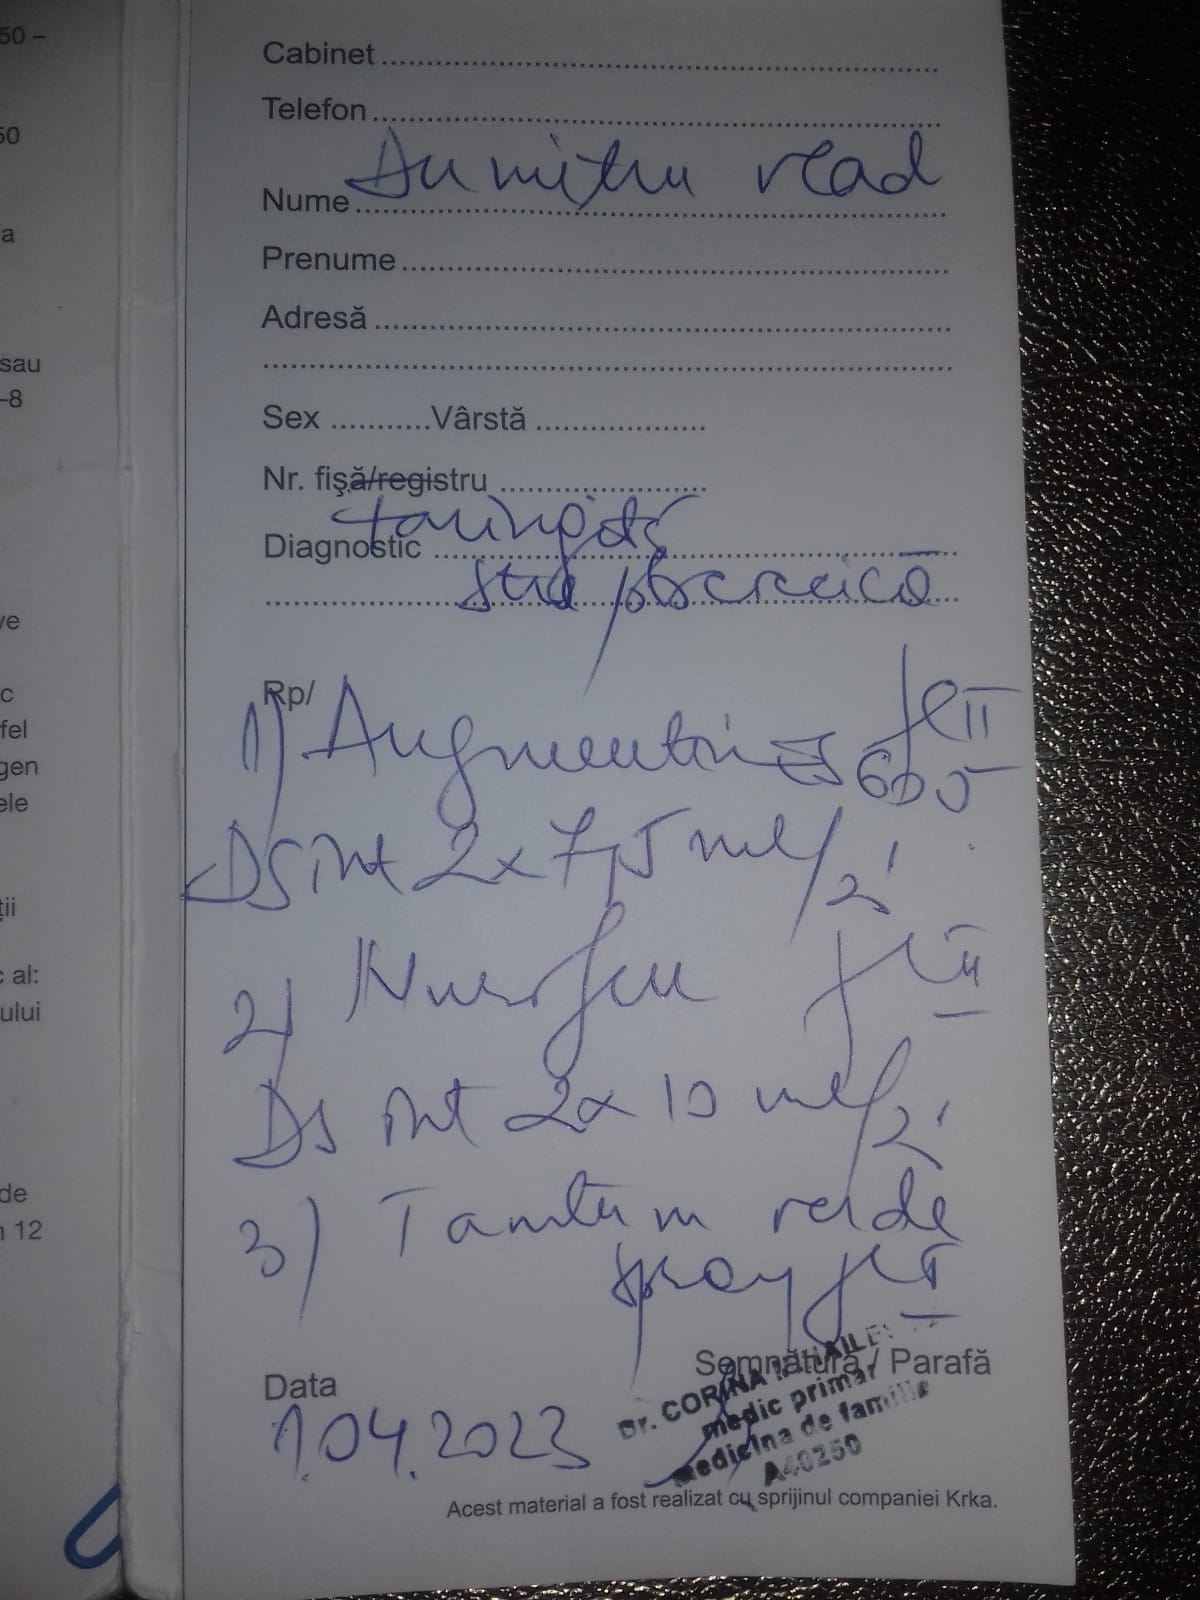 50 –
Cabinet
Telefon
50
Dumitru Vlad
Nume
a
Prenume
Adresă
sau
–8
Sex ........... Vârstă
Nr. fișă/registru
Faringită
Diagnostic
streptococică
ve
c
Rp/
fel
1) Augmentin ES fl II
gen
600
ele
DS int 2x7,5 ml/zi
ții
2) Nurofen fl II
c al:
ului
Ds int 2x10 ml/zi
de
3) Tantum verde
n 12
spray fl I
Semnătura / Parafă
Data
Dr. CORINA
1.04.2023
medic primar
medicina de familie
A40250
Acest material a fost realizat cu sprijinul companiei Krka.